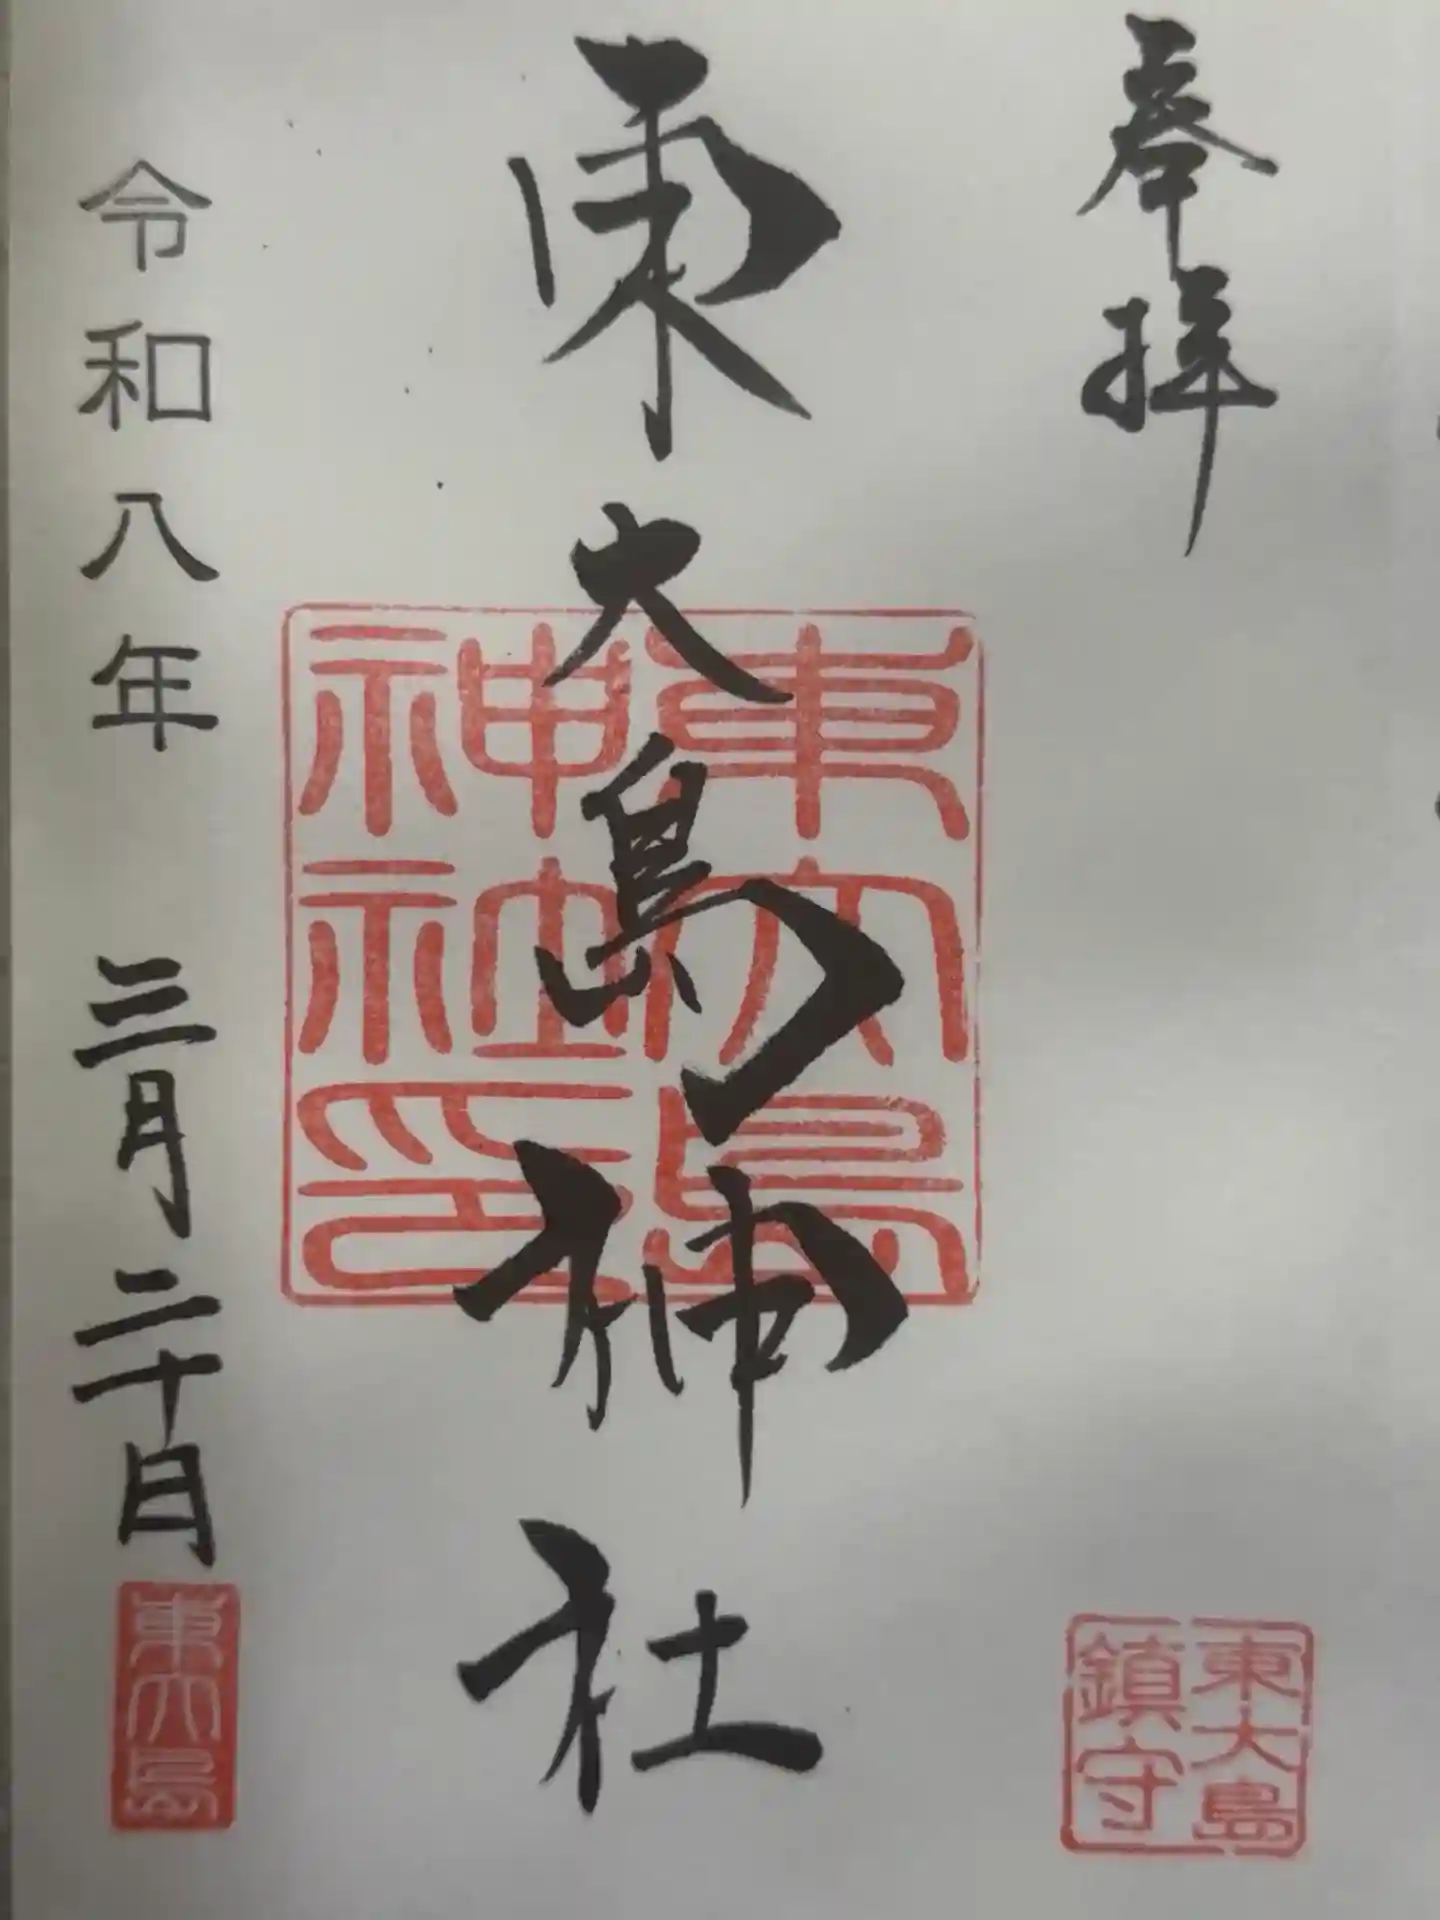 奉拝
東大島鎮守
東大島神社
東大島神社印
令和八年 三月二十日
東大島